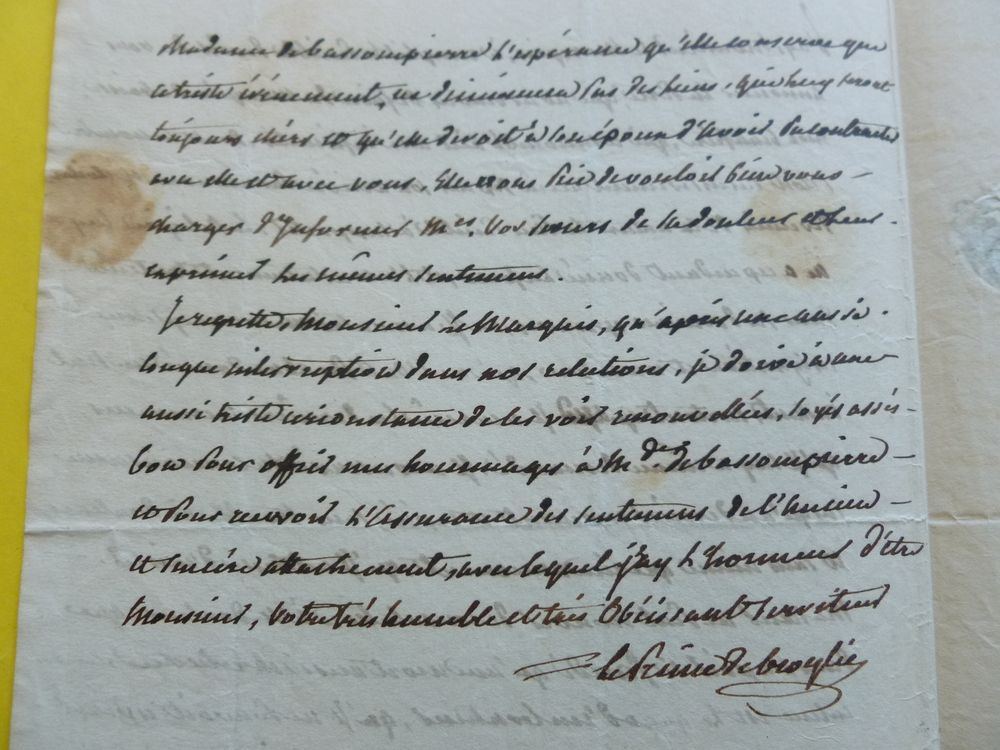 Madame de bassompierre L'espérance qu'elle conserve que
ce triste événement, ne diminuera pas des liens, qui luy seront
toujours chers et qu'elle devoit à son époux d'avoir pu contracter
avec elle et avec vous, Elle vous prie de vouloir bien vous
charger d'Informer Mes. Vos soeurs de sa douleur et leur
exprimer les mêmes sentimens.
Je regrette, Monsieur Le Marquis, qu'après une aussi
longue interruption dans nos relations, je doive à une
aussi triste circonstance de les voir renouvellées, soyés assés
bon pour offrir mes hommages à Mde. de bassompierre
et pour recevoir L'assurance des sentimens de l'ancien
et sincère attachement, avec lequel j'ay L'honneur d'être
Monsieur, Votre très humble et très Obéissant serviteur
le Prince de broglie